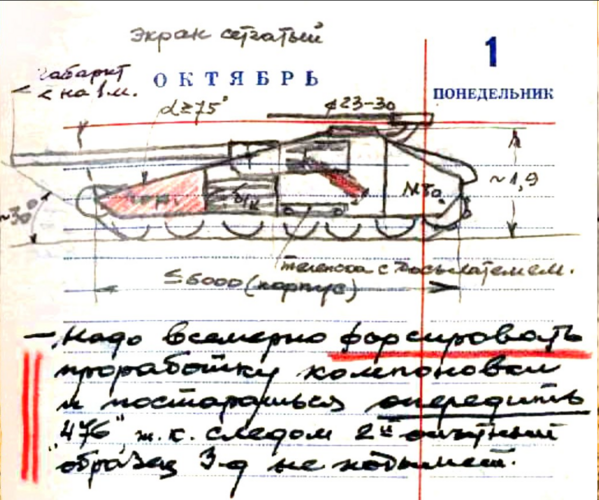 Экран сетчатый
габарит
< на 1 м.
ОКТЯБРЬ
1
ПОНЕДЕЛЬНИК
α≥75°
⌀23-30
~1,9
~30°
тележка с досылателем.
≤6000 (корпус)
— Надо всемерно форсировать
проработку компоновки
и постараться опередить
"476", т.к. следом 2ой опытный
образец З-д не подымет.